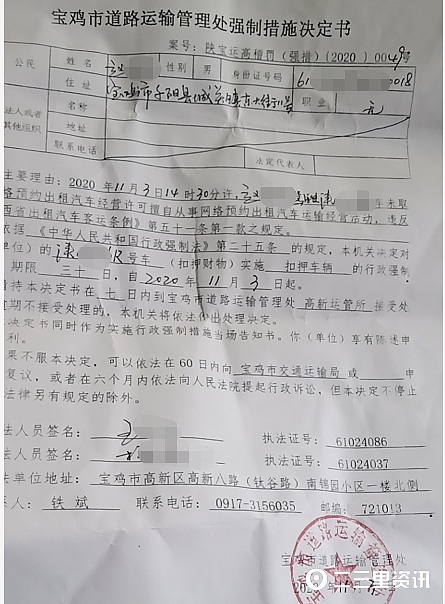 宝鸡市道路运输管理处强制措施决定书
案号：陕宝运高稽罚（强措）（2020）0049号
公民 姓名 性别 男 身份证号码 61 0018
住址 宝鸡市千阳县城关镇东大街 号 职业 无
法人或者其他组织 名称
地址
联系电话 法定代表人
主要理由：2020年11月3日14时30分许， 车未取
络预约出租汽车经营许可擅自从事网络预约出租汽车运输经营活动，违反
西省出租汽车客运条例》第五十一条第一款之规定。
依据《中华人民共和国行政强制法》第二十五条 的规定，本机关决定对
单位）的 号车 （扣押财物）实施 扣押车辆 的行政强制
期限 三十 日，自2020年11月3日起。
持本决定书在 七 日内到宝鸡市道路运输管理处 高新运管所 接受处
逾期不接受处理的，本机关将依法作出处理决定。
决定书同时作为实施行政强制措施当场告知书。你（单位）享有陈述申
利。
果不服本决定，可以依法在60日内向 宝鸡市交通运输局 或 申
复议，或者在六个月内依法向人民法院提起行政诉讼，但本决定不停止
法律另有规定的除外。
法人员签名： 执法证号： 61024086
法人员签名： 执法证号： 61024037
法单位地址： 宝鸡市高新区高新八路（钛谷路）南锦园小区一楼北侧
系人： 铁斌 联系电话： 0917-3156035 邮编： 721013
宝鸡市道路运输管理处
二三里资讯